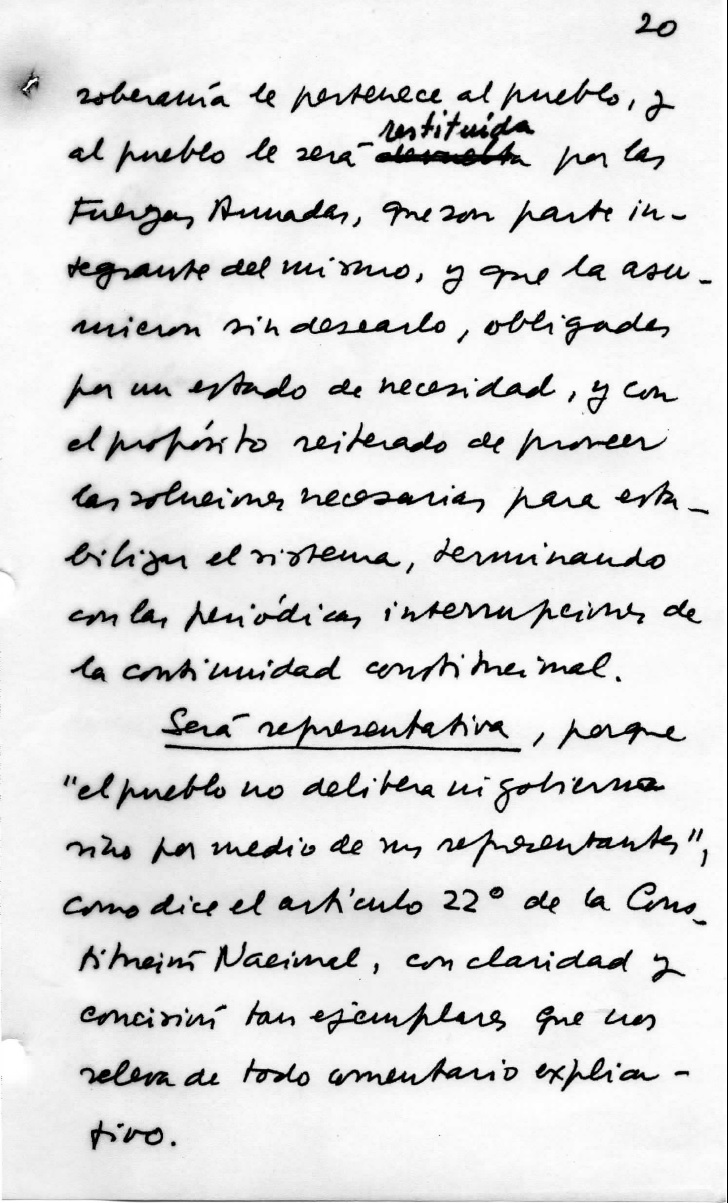 20
soberanía le pertenece al pueblo, y
restituida
al pueblo le será devuelta por las
Fuerzas Armadas, que son parte in-
tegrante del mismo, y que la asu-
mieron sin desearlo, obligadas
por un estado de necesidad, y con
el propósito reiterado de proveer
las soluciones necesarias para esta-
bilizar el sistema, terminando
con las periódicas interrupciones de
la continuidad constitucional.
Será representativa, porque
"el pueblo no delibera ni gobierna
sino por medio de sus representantes",
como dice el artículo 22° de la Cons-
titución Nacional, con claridad y
concisión tan ejemplares que nos
releva de todo comentario explica-
tivo.